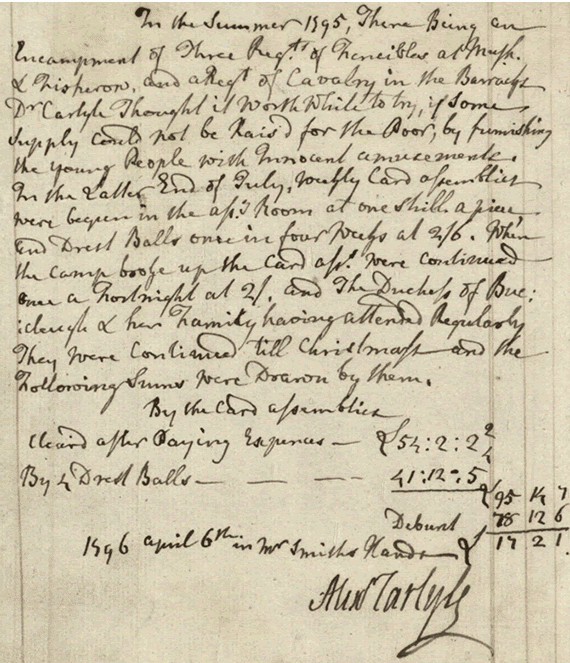 In the Summer 1795, There Being an
Encampment of Three Regts. of Fencibles at Mussh.
& Fisherow, and a Regt of Cavalry in the Barracks
Dr Carlyle Thought it Worth While to try, if Some
Supply could not be Rais'd for the Poor, by furnishing
the young People with Innocent amusements.
In the Latter End of July, weekly Card assemblies
were begun in the ass. Room at one shill. a piece
and Drest Balls once in four Weeks at 2/6. When
the Camp broke up the Card ass. were continued
once a Fortnight at 2/. and The Duchess of Buc:
:cleugh & her Family having attended Regularly
They were Continued till Christmass and the
Following Sums were Drawn by them.
By the Card assemblies
Clear'd after Paying Expences — £54:2:2
By 4 Drest Balls — — — 41:12:5
£95 14 7
Deburst 78 12 6
1796 april 6th in Mr Smiths Hands £17 2 1.
Alexr Carlyle